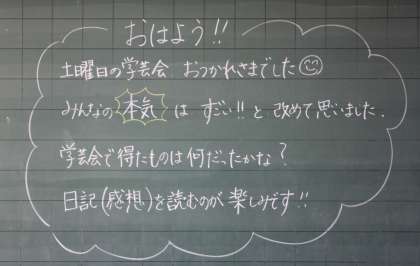 おはよう!!
土曜日の学芸会 おつかれさまでした
みんなの 本気 は すごい!! と 改めて思いました.
学芸会で得たものは何だったかな?
日記(感想)を読むのが楽しみです!!